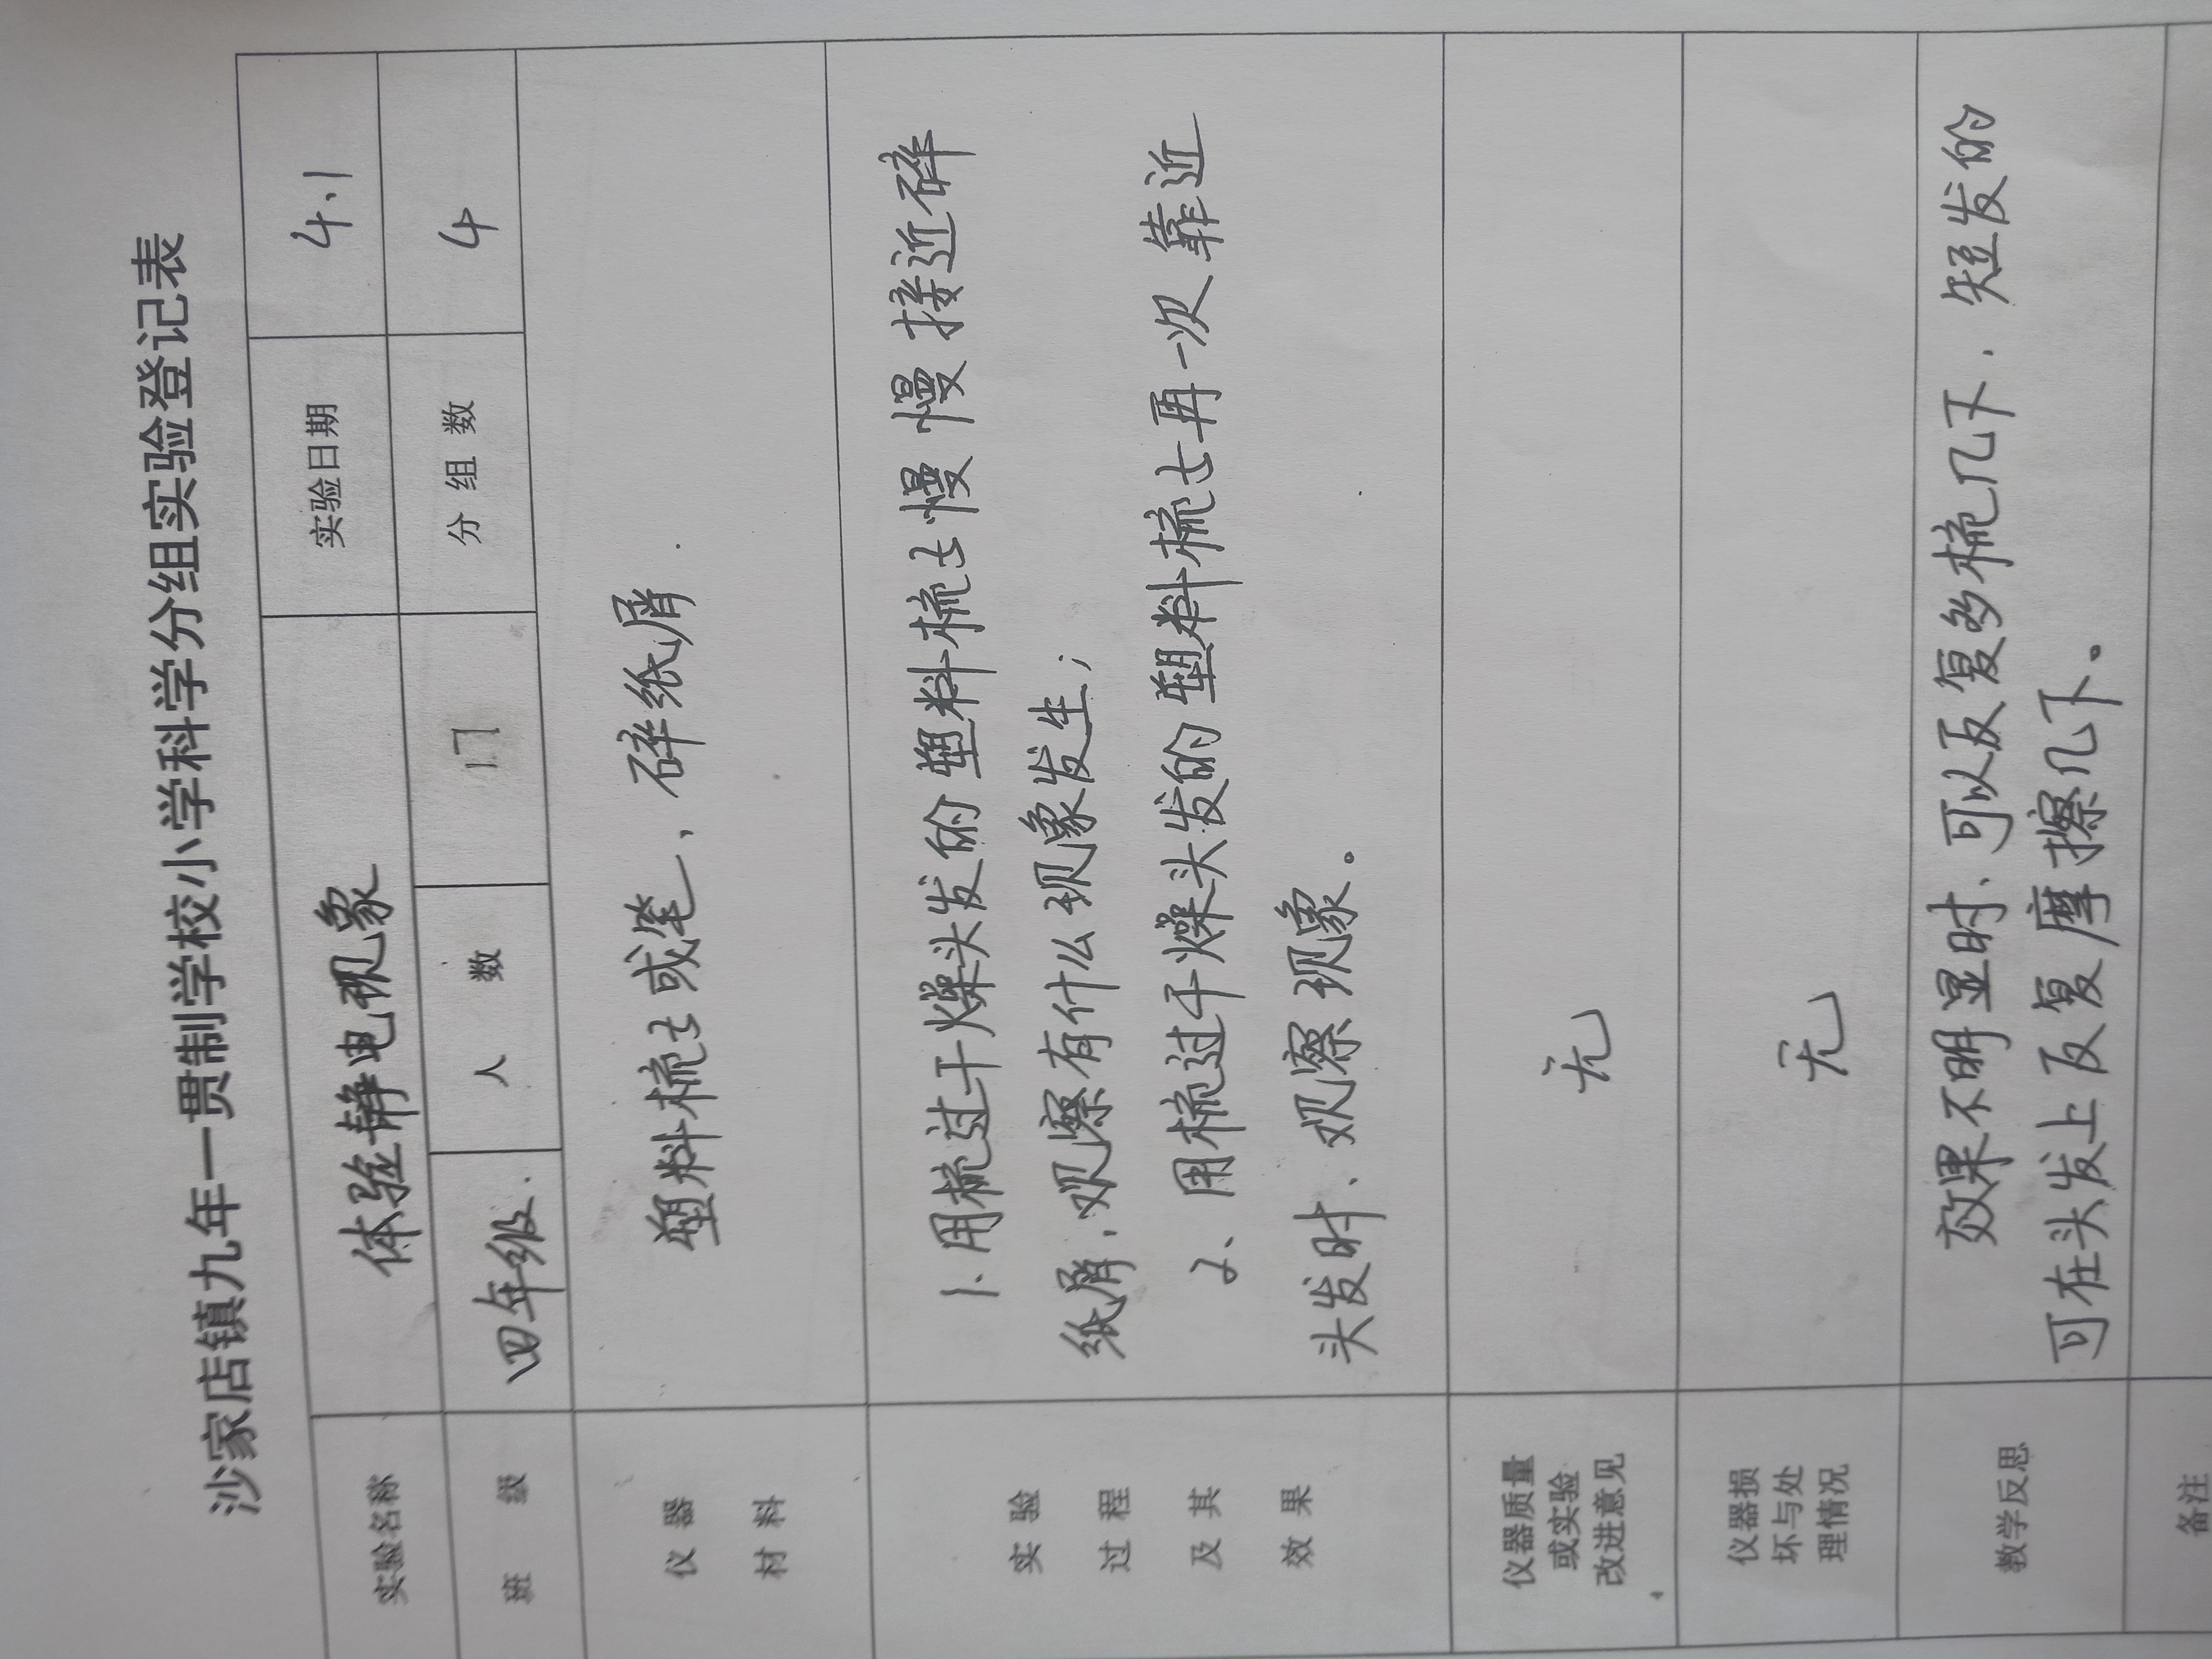 沙家店镇九年一贯制学校小学科学分组实验登记表
实验名称 体验静电现象 实验日期 4.1
班级 四年级. 人数 17 分组数 4
仪器材料 塑料梳子或笔、碎纸屑.
实验过程及其效果
1.用梳过干燥头发的塑料梳子慢慢接近碎
纸屑,观察有什么现象发生;
2、用梳过干燥头发的塑料梳子再一次靠近
头发时、观察现象。
仪器质量或实验改进意见 无
仪器损坏与处理情况 无
教学反思
效果不明显时、可以反复多梳几下、短发的
可在头发上反复摩擦几下。
备注